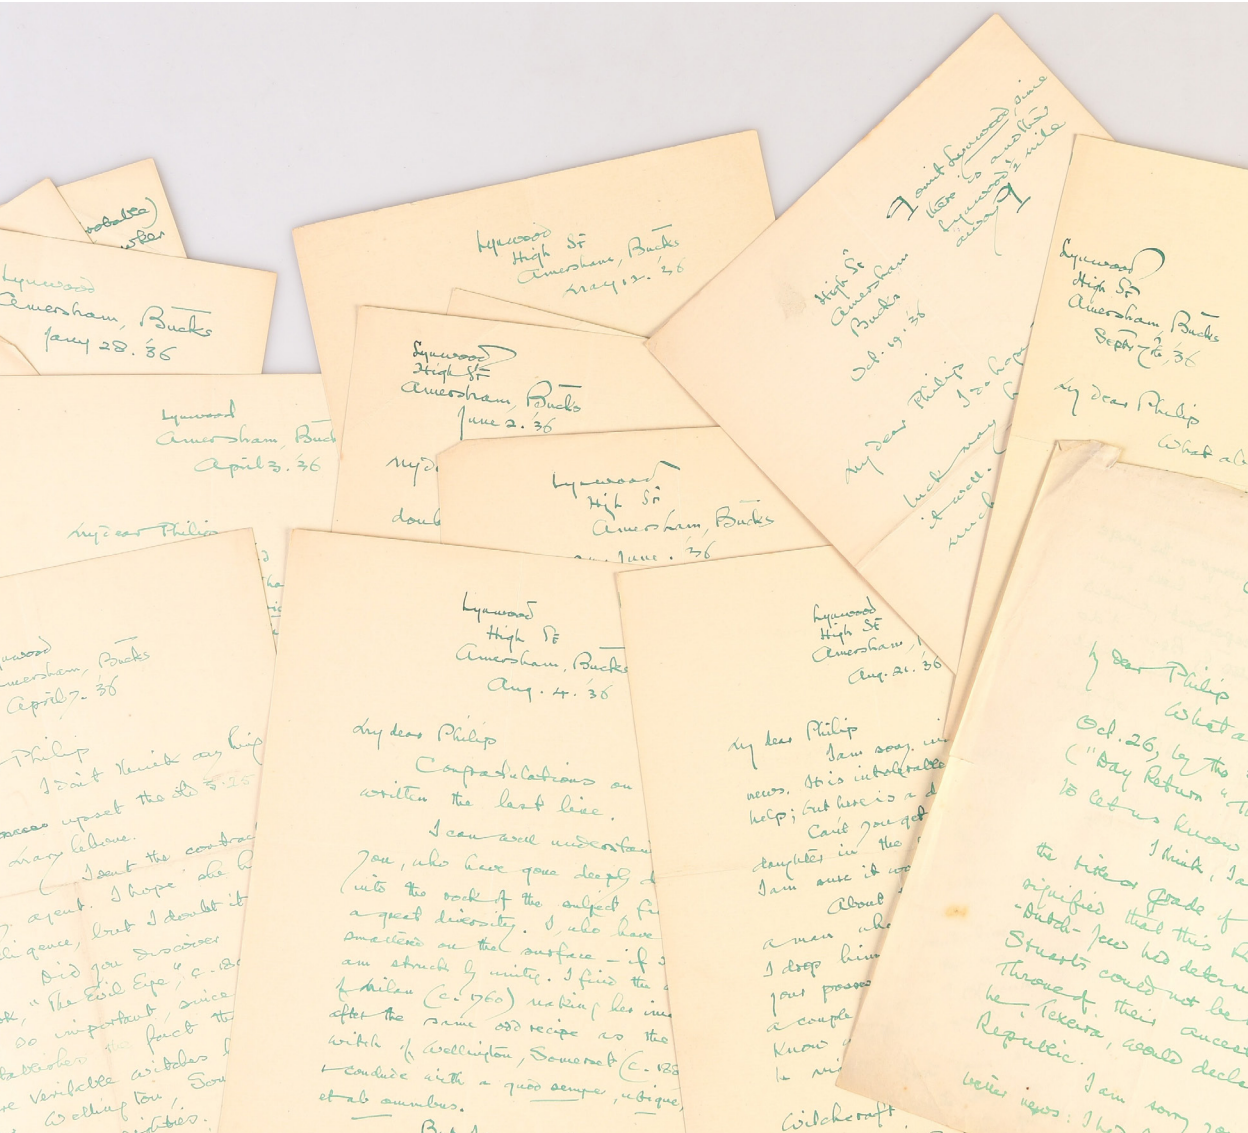 Lynwood
Amersham, Bucks
Jany 28. '36
Lynwood
High St
Amersham, Bucks
May 13. '36
I omit Lynwood, since
there is another
Lynwood ½ mile
away
High St
Amersham
Bucks
Oct. 19. '36
My dear Philip
I do hope
luck may
it well.
much
Lynwood
High St
Amersham, Bucks
Sept 7th, '36
My dear Philip
What a
Lynwood
Amersham, Buck
April 3. '36
My dear Philip
Lynwood
High St
Amersham, Bucks
June 2. '36
My d
doub
Lynwood
High St
Amersham, Bucks
June. '36
ynwood
mersham, Bucks
April 7. '36
Philip
I don't think any thing
upset the old
Mary Celeste.
I sent the contrac
agent. I hope she h
lligence, but I doubt it
Did you discover
"The Evil Eye", c. 18
so important, since
tablishes the fact th
re veritable witches
Wellington, Som
Lynwood
High St
Amersham, Bucks
Aug. 4. '36
My dear Philip
Congratulations on
written the last line.
I can well understan
you, who have gone deeply
into the rock of the subject, fi
a great diversity. I, who have
smattered on the surface – if
am struck by unity. I find the
of Milan (c. 1760) making her im
after the same odd recipe as the
witch of Wellington, Somerset (c. 188
& conclude with a quod semper, ubique,
et ab omnibus.
Lynwood
High St
Amersham,
Aug. 21. '36
My dear Philip
I am sorry
news. It is intolerable
help; but here is a d
Can't you get
daughter in the
I am sure it wo
About
a man who
I drop him
your posses
a couple
know
Witchcraft
y dear Philip
What a
Oct. 26, by the
("Day Return"
to let us know
I think, I a
the
grade of
signified that this
"Dutch-Jew had determ
Stuarts could not be
Throne of their ancest
he, Texeira, would decla
Republic.
I am sorry yo
better news: I ho